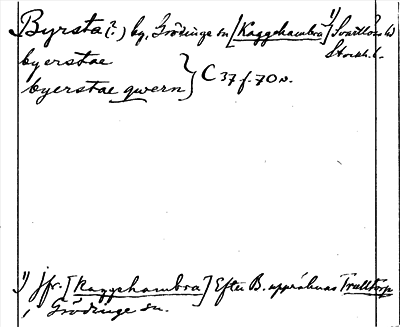 Byrsta (?) by, Grödinge sn [Kaggehambra]¹⁾ Svartlösa hd
Stockh. l.
byerstae
byerstae qwern } C 37 f. 70 v.
¹⁾ jfr. [Kaggehambra] Efter B. uppräknas Trulltorp
, Grödinge sn.